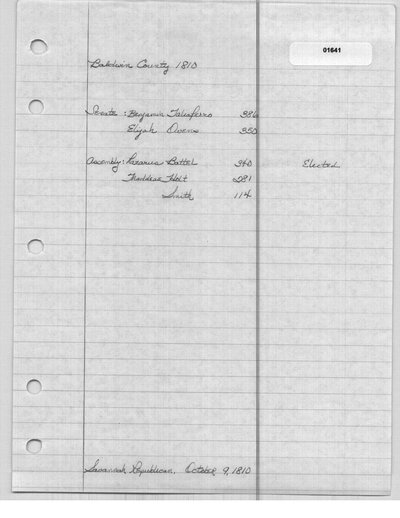 01641
Baldwin County 1810
Senate: Benjamin Taliaferro 386
Elijah Owens 350
Assembly: Lazarus Battel 340 Elected
Thaddeus Holt 281
Smith 114
Savannah Republican, October 9, 1810